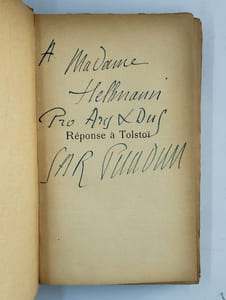 A Madame
Hellmann
Pro Ars & Dus
Réponse à Tolstoï
SAR Peladan